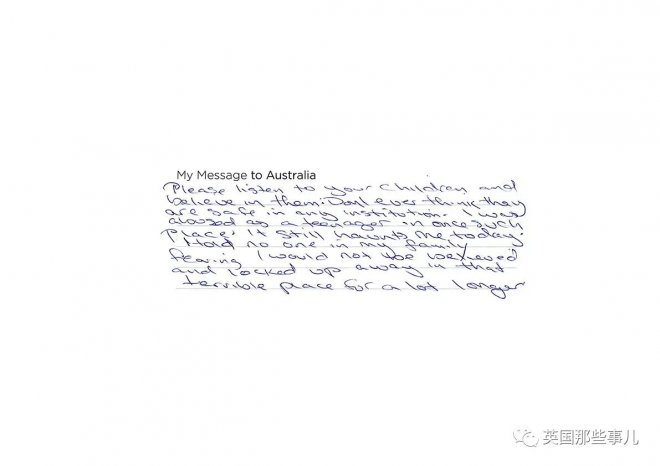 My Message to Australia
Please listen to your children and
believe in them. Don't ever think they
are safe in any institution. I was
abused as a teenager in once such
place. it still haunts me today.
I told no one in my family
fearing I would not be believed
and locked up away in that
terrible place for a lot longer
英国那些事儿